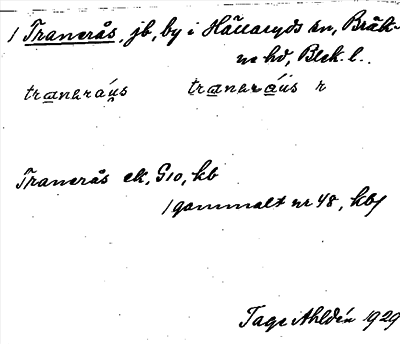 1 Tranerås, jb, by i Hällaryds sn, Bräk-
ne hd, Blek. l.
tranaráu̯s tranaráu̯s r
Tranerås ek, G10, kb
/gammalt nr 48, kb/
Tage Ahldén 1929